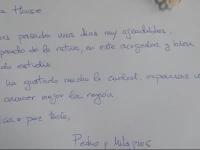 a House
pasado unos días muy agradables.
de la rutina, en este acogedor y bien
estudio
ha gustado mucho la ciudad, esperamos
conocer mejor la región
por todo,
Pedro y Milagros